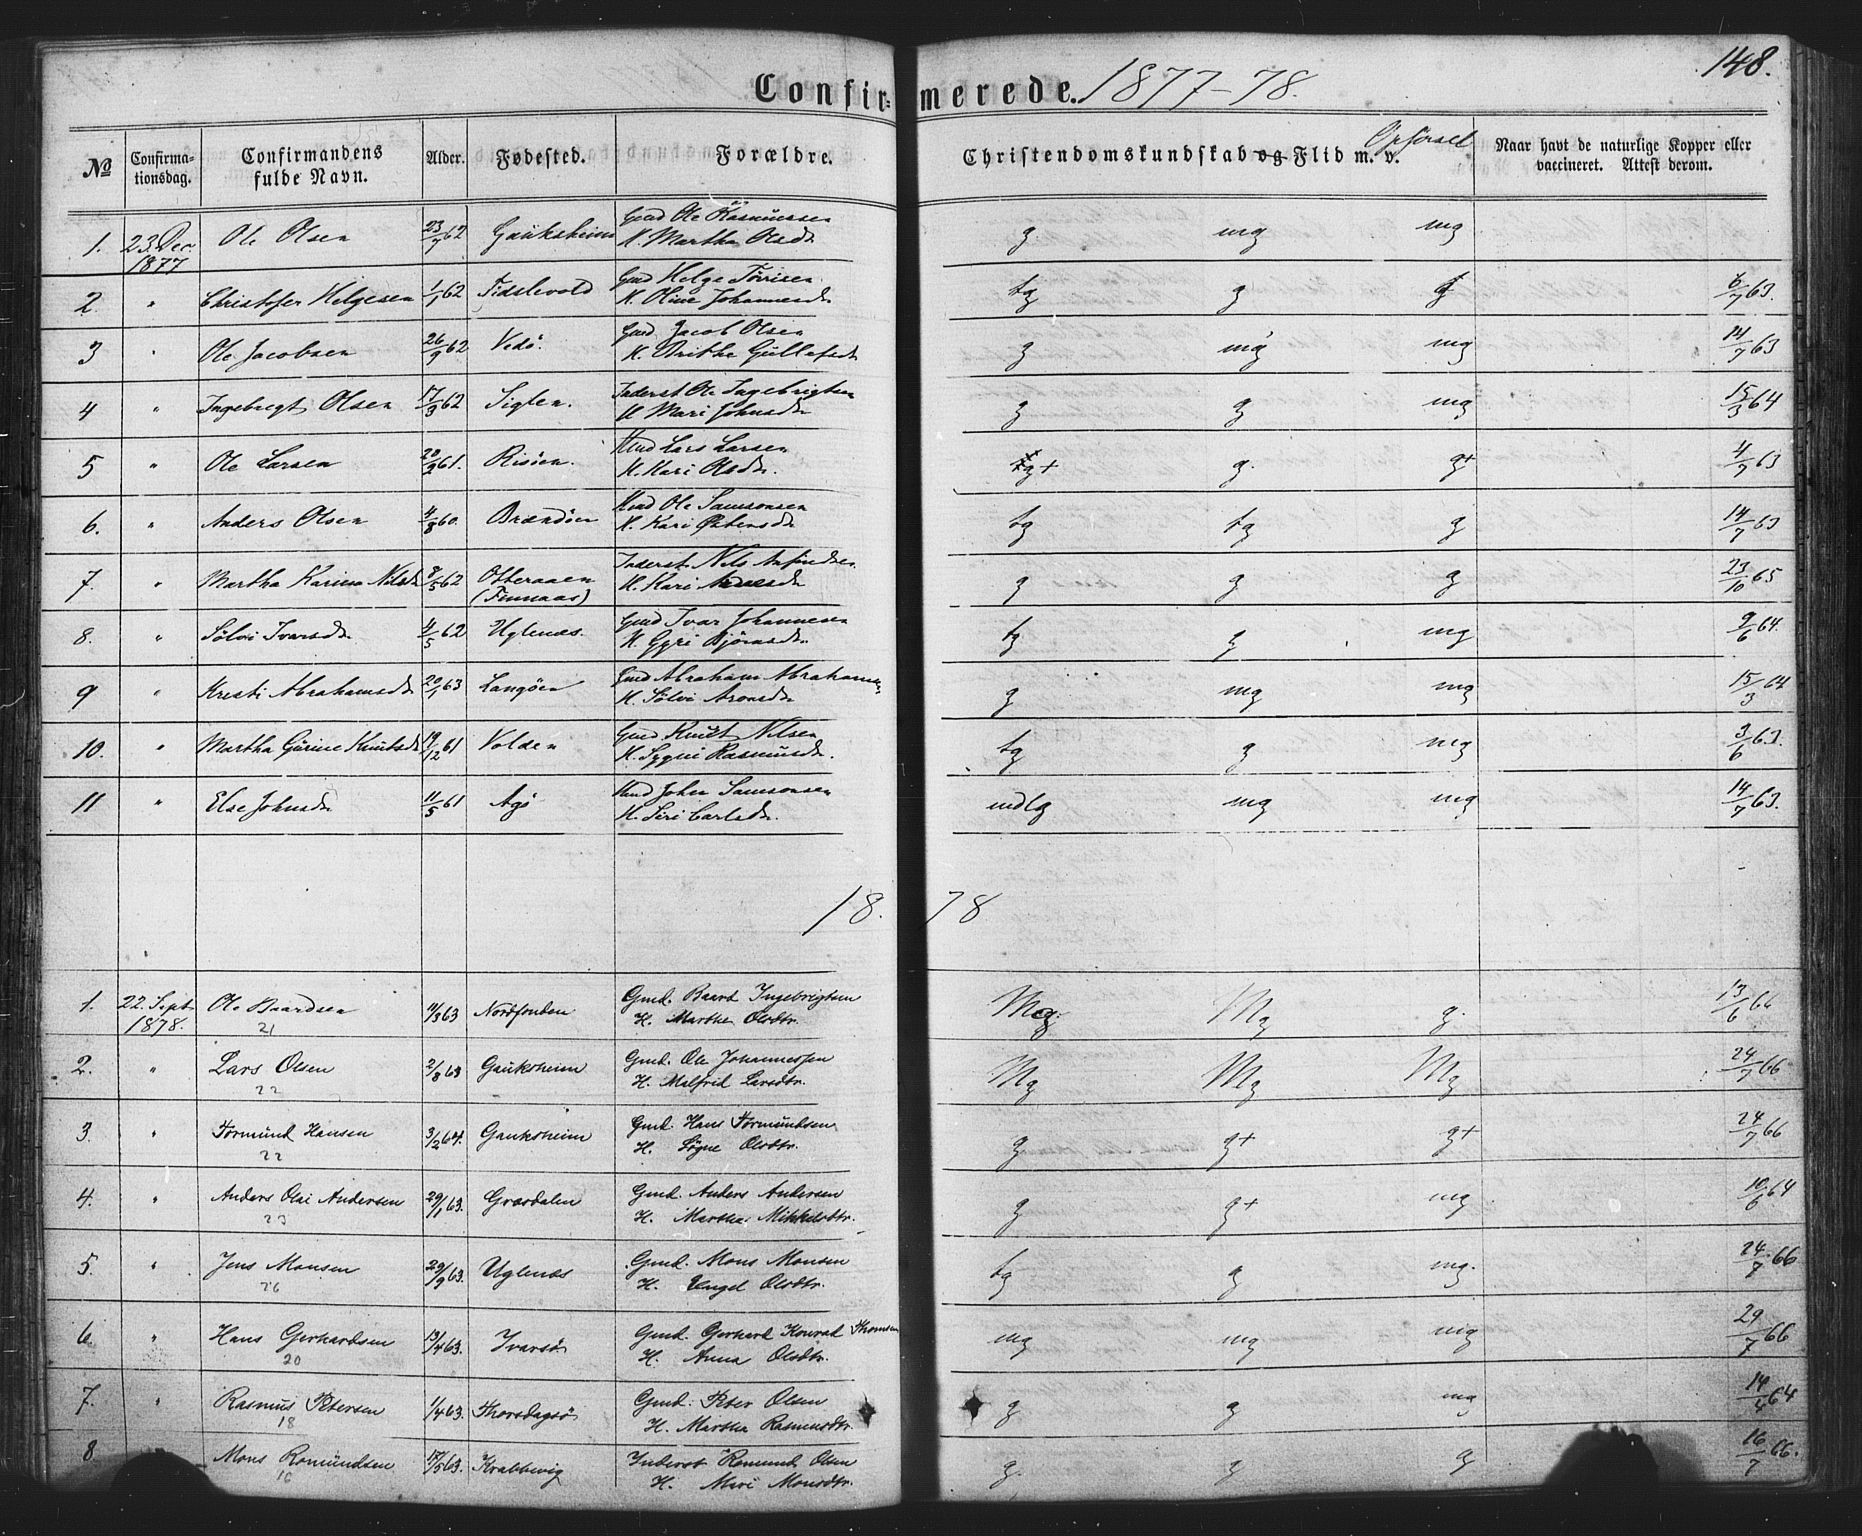 148.
Confirmerede. 1877-78.
No Confirmationsdag. Confirmandens fulde Navn. Alder. Fødested. Forældre. Christendomskundskab og Flid m. v. Opførsel Naar havt de naturlige Kopper eller vaccineret. Attest derom.
1. 23 Dec 1877 Ole Olsen 23/7 62 Gauksheim Gmd Ole Rasmussen g mg mg
K. Martha Olsdt
2. " Christofer Helgesen 1/1 62 Tidslevold Gmd Helge Tørrisen tg g g 6/7 63.
K. Oline Johannesdt
3 " Ole Jacobsen 26/9 62 Vedø. Gmd. Jacob Olsen g mg mg 14/7 63
K. Brithe Gullefsdt
4 " Ingebregt Olsen 17/3 62 Siglen. Inderst Ole Ingebrigtsen g g mg 15/3 64
K Mari Johnsdt
5 " Ole Larsen 20/2 61. Risøen. Hmd Lars Larsen g+ g. g+ 4/7 63
K. Kari Olsdt.
6. " Anders Olsen 4/8 60. Brændøen Hmd Ole Samsonsen tg tg g 14/7 63
K. Kari Østensdt
7. " Martha Karina Nilsdt 8/5 62 Otteraaen (Finnaas) Inderst Nils Arfindsen g g g 23/10 65
K. Kari
8. " Sølvi Ivarsdt 4/5 62 Uglenæs. Gmd Ivar Johannesen tg g mg 9/6 64.
K. Gyri Bjørnsdt.
9 " Kristi Abrahamsdt 20/1 63 Langøen Gmd Abraham Abrahamsen g mg mg 15/3 64
K. Sølvi Aronsdt
10. " Martha Gurine Knutsdt 19/12 61 Volden Gmd Knut Nilsen tg g mg 3/6 63.
K. Sygni Rasmusdt.
11 " Else Johnsdt 11/5 61 Agø Hmd John Samsonsen mdlg mg mg 14/7 63.
K. Siri Carlsdt.
18. 78
1. 22. Sept 1878. Ole Baardsen 11/3 63 Nordfonden Gmd. Baard Ingebrigtsen Mg. Mg g. 13/6 66
21 H. Marthe Olsdtr.
2. " Lars Olsen 2/8 63 Gauksheim Gmd. Ole Johannessen Mg Mg Mg 24/7 66
22 H. Malfrid Larsdtr.
3. " Tormund Hansen 3/2 64. Gauksheim Gmd. Hans Tormundsen g g+ g+ 24/7 66
22 H. Søgne Olsdtr.
4. " Anders Olai Andersen 29/1 63. Græsdalen Gmd. Anders Andersen g g+ mg 10/6 64
23 H. Martha Mikkelsdtr.
5. " Jens Monsen 29/9 63. Uglenæs Gmd. Mons Monsen tg g mg. 24/7 66
26 H. Engel Olsdtr.
6. " Hans Gerhardsen 13/4 63. Ivarsø Gmd. Gerhard Konrad Thomsen mg mg mg 29/7 66
20 H. Anna Olsdtr.
7. " Rasmus Petersen 1/4 63. Thorsdagsø Gmd. Peter Olsen g g mg 14/4 64
18 H. Martha Rasmusdtr.
8 " Mons Romundsen 17/5 63. Krabbevig Inderst Romund Olsen g. g g 16/7 66.
16 H. Mari Monsdtr.